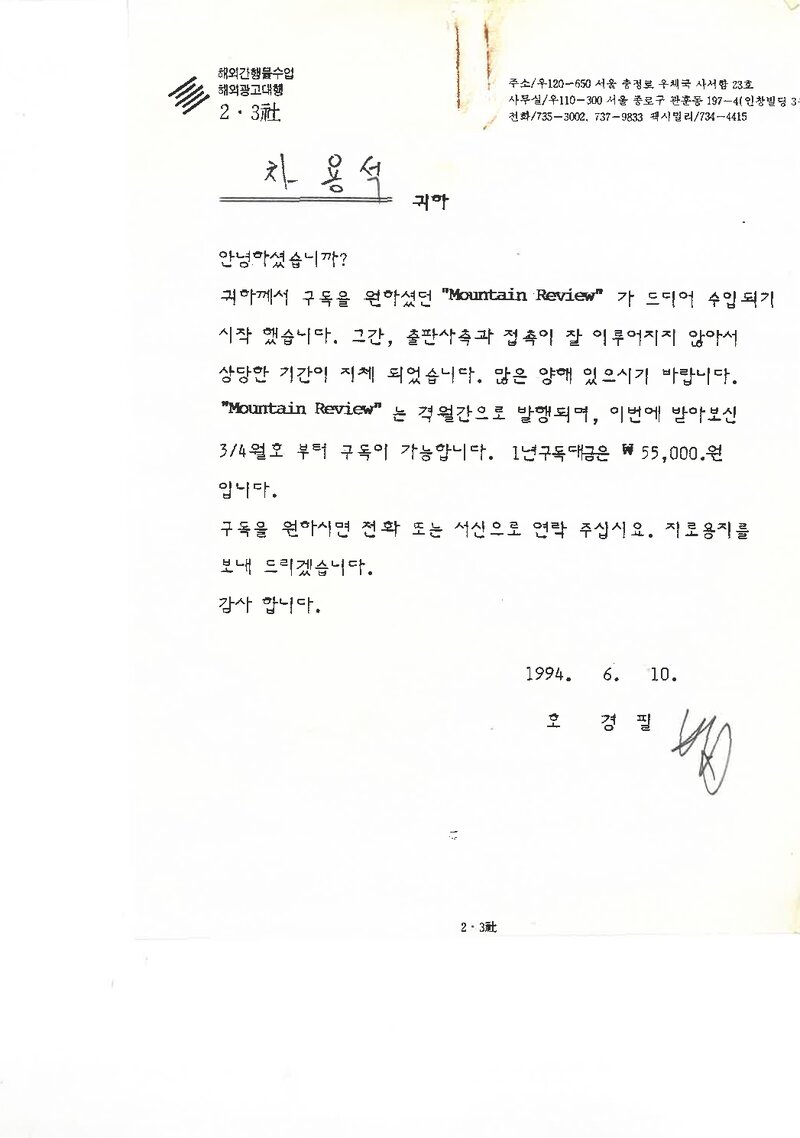 해외간행물수입
해외광고대행
2·3社
주소/우120-650 서울 충정로 우체국 사서함 23호
사무실/우110-300 서울 종로구 관훈동 197-4(인창빌딩 3
전화/735-3002, 737-9833 팩시밀리/734-4415
차용석 귀하
안녕하셨습니까?
귀하께서 구독을 원하셨던 "Mountain Review" 가 드디어 수입되기
시작 했습니다. 그간, 출판사측과 접촉이 잘 이루어지지 않아서
상당한 기간이 지체 되었습니다. 많은 양해 있으시기 바랍니다.
"Mountain Review" 는 격월간으로 발행되며, 이번에 받아보신
3/4월호 부터 구독이 가능합니다. 1년구독대금은 ₩ 55,000.원
입니다.
구독을 원하시면 전화 또는 서신으로 연락 주십시요. 지로용지를
보내 드리겠습니다.
감사 합니다.
1994. 6. 10.
호 경 필
2·3社